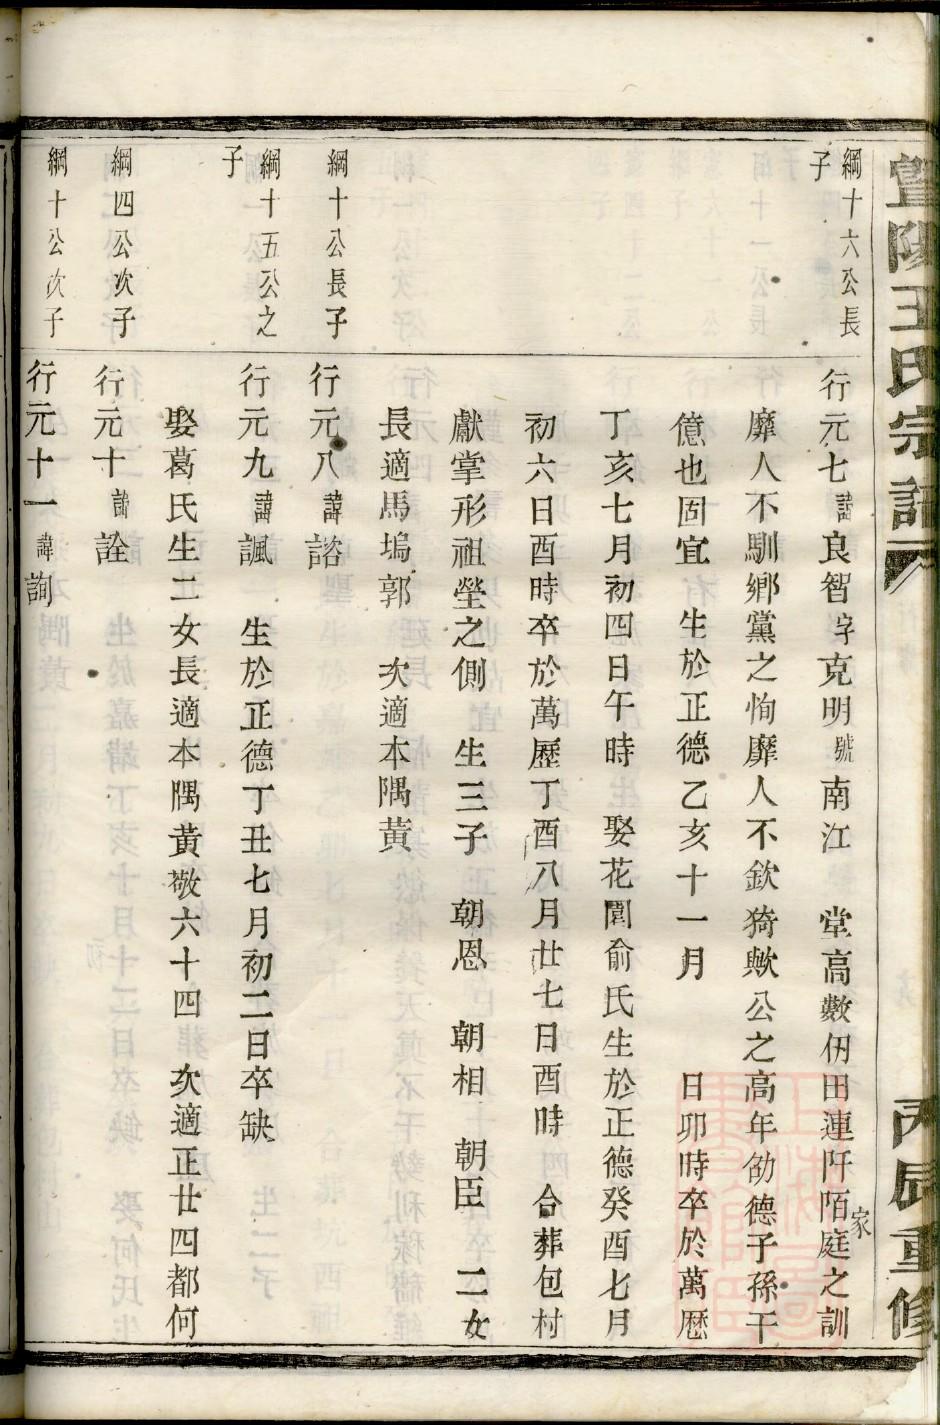 暨陽王氏宗譜
丙辰重修
綱十六公長
子
行元七諱良智字克明號南江　堂高數仞田連阡陌庭之訓
家
靡人不馴鄉黨之恂靡人不欽猗歟公之高年劭德子孫千
億也固宜　生於正德乙亥十一月　　日卯時卒於萬厯
丁亥七月初四日午時　娶花園俞氏生於正德癸酉七月
初六日酉時卒於萬歷丁酉八月廿七日酉時　合葬包村
獻掌形祖塋之側　生三子　朝恩　朝相　朝臣　二女
長適馬塢郭　次適本隅黃
綱十公長子
行元八諱諮
綱十五公之
子
行元九諱諷　生於正德丁丑七月初二日卒缺
娶葛氏生二女長適本隅黃敬六十四　次適正廿四都何
綱四公次子
行元十諱詮
綱十公次子
行元十一諱詢